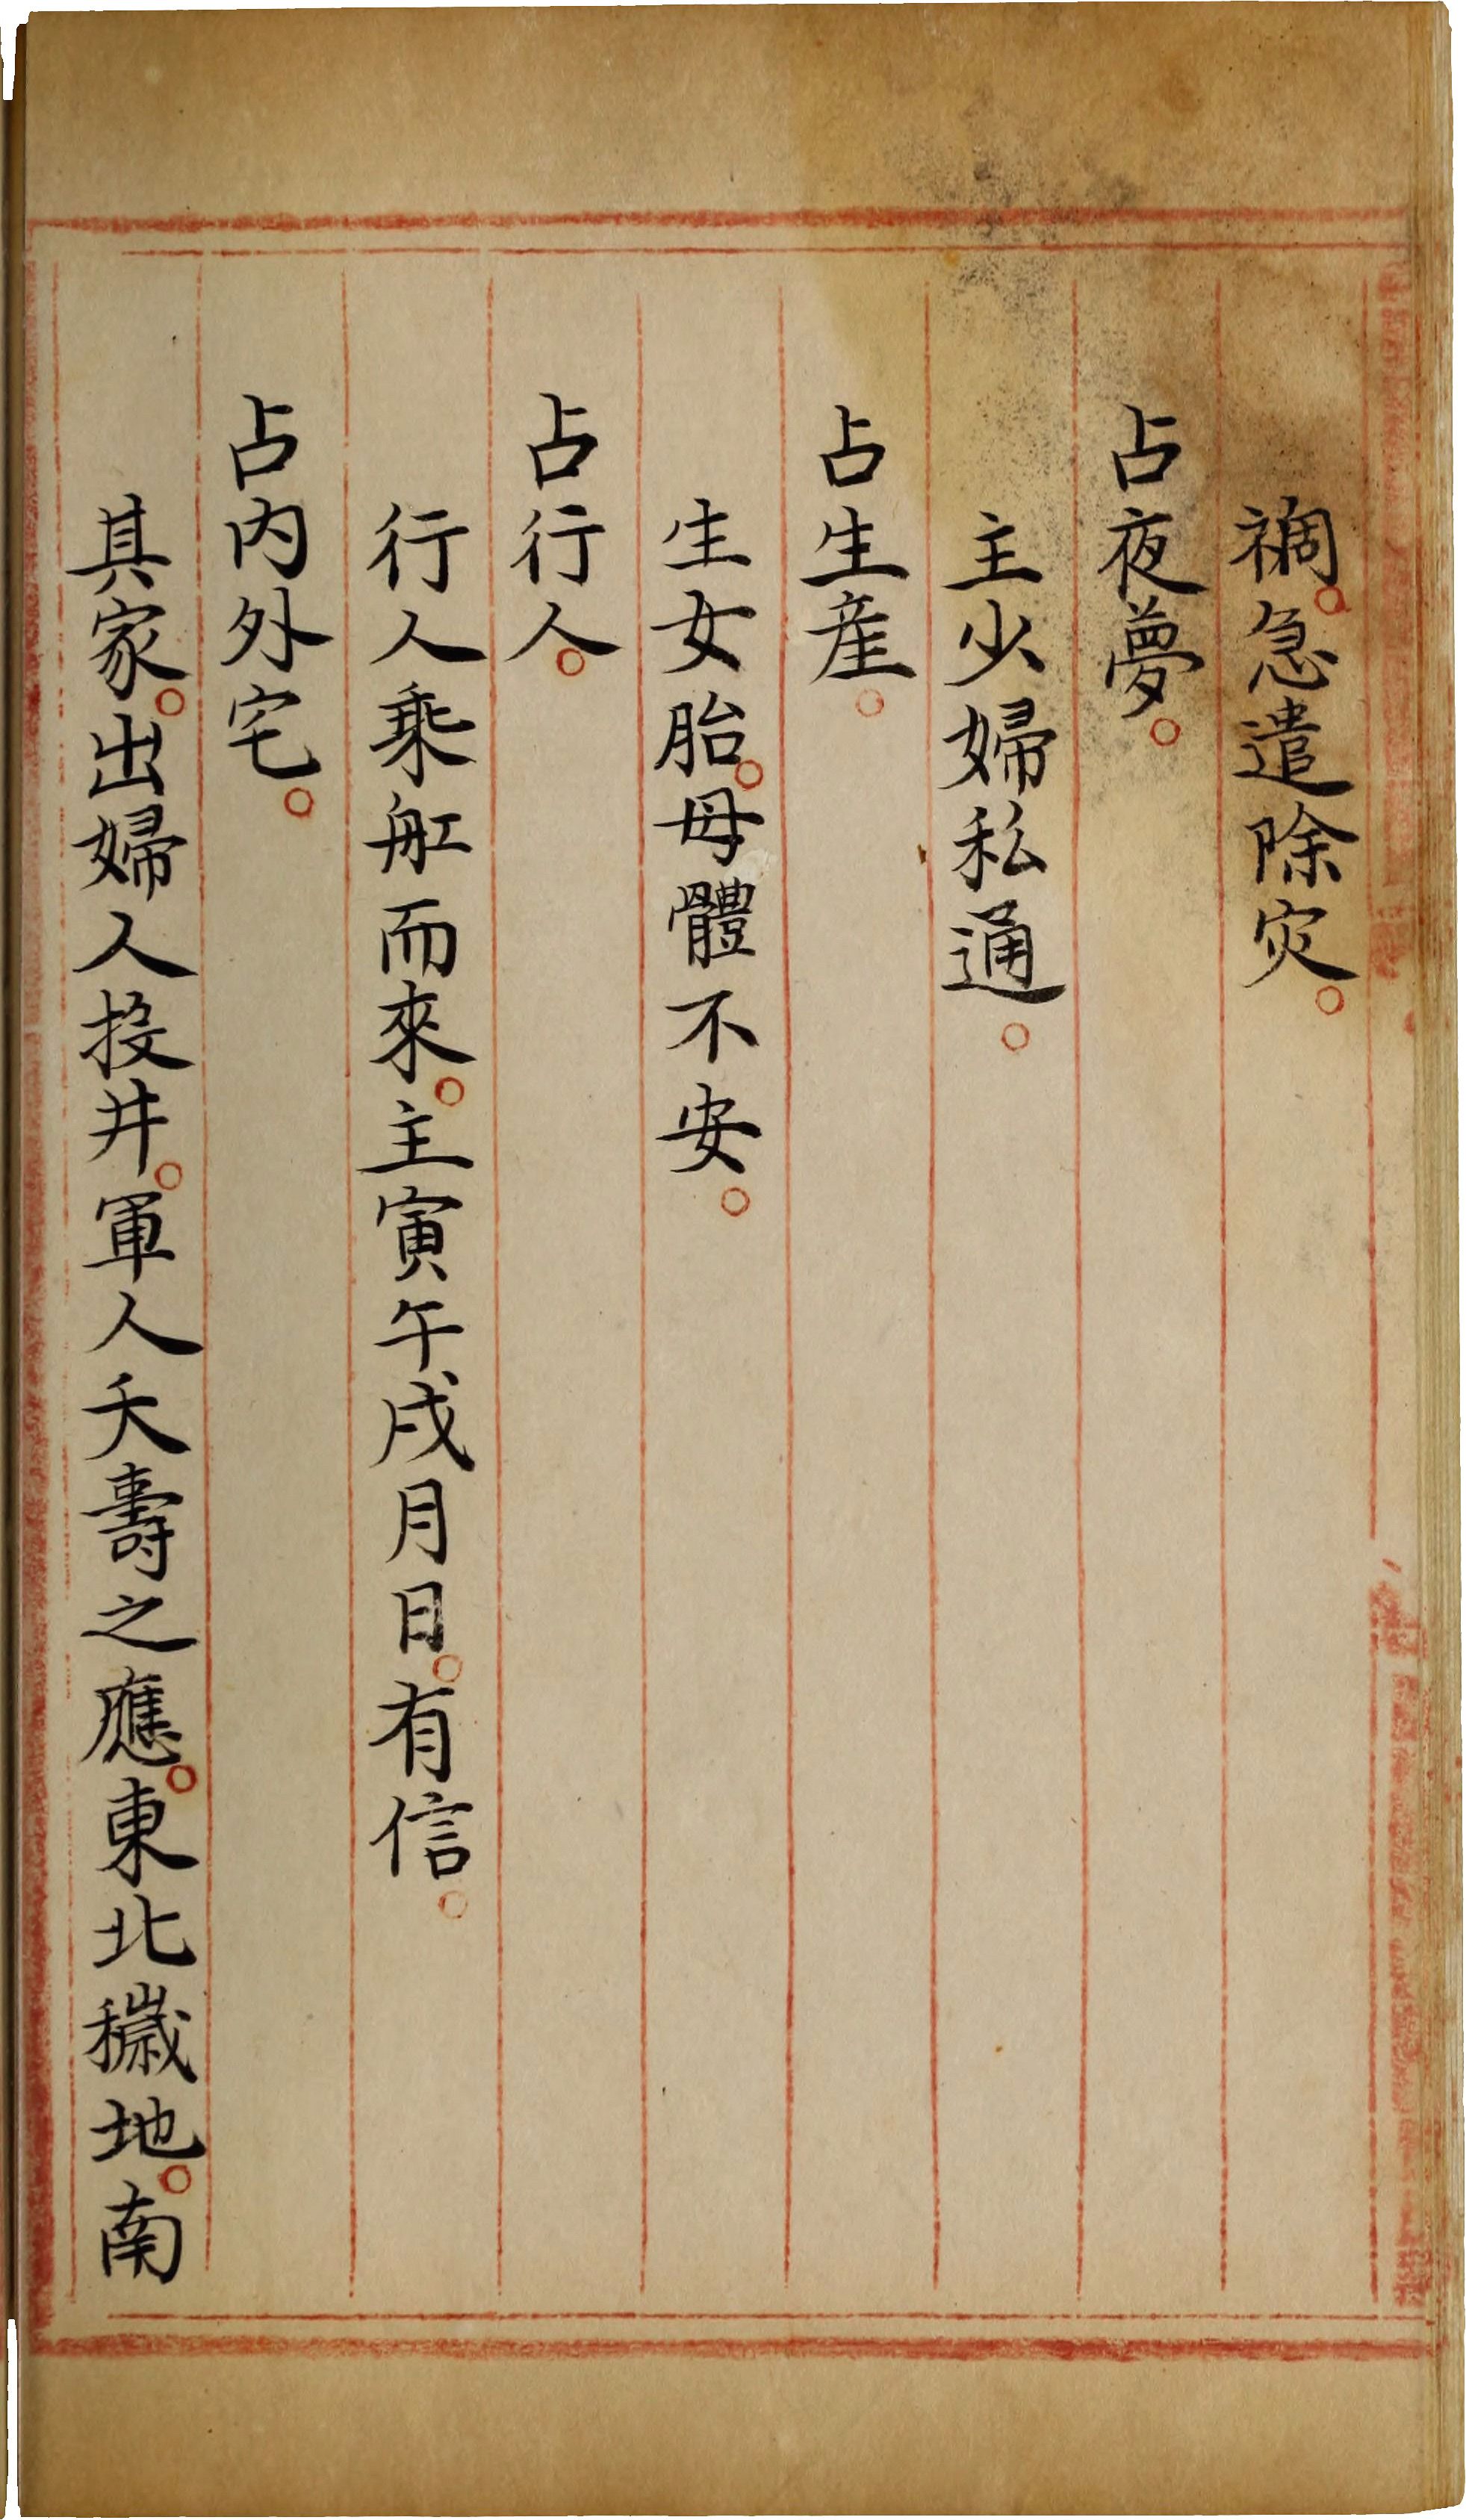 禍。急遣除灾。
占夜夢。
主少婦私通。
占生產。
生女胎。母體不安。
占行人。
行人乘舡而來。主寅午戌月日。有信。
占內外宅。
其家。出婦人投井。軍人夭壽之應。東北穢地。南